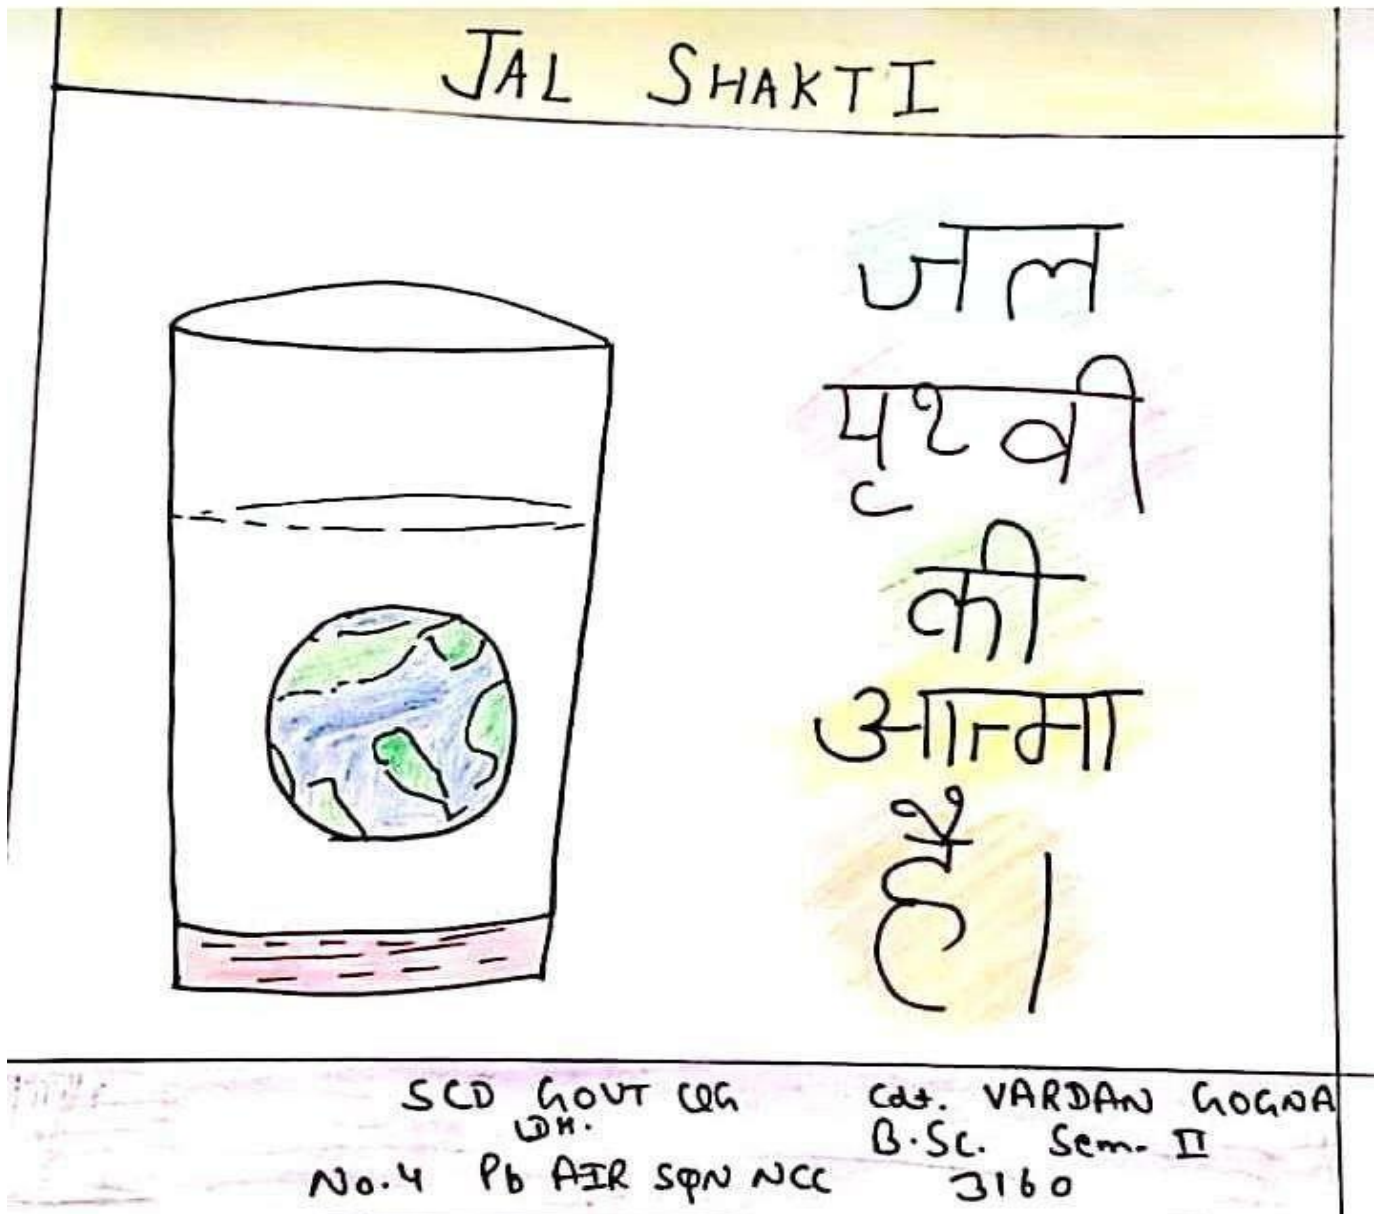 JAL SHAKTI
जल
पृथ्वी
की
आत्मा
है।
SCD GOVT CLG
LDH.
No.4 Pb AIR SQN NCC
Cdt. VARDAN GOGNA
B.Sc. Sem. II
3160